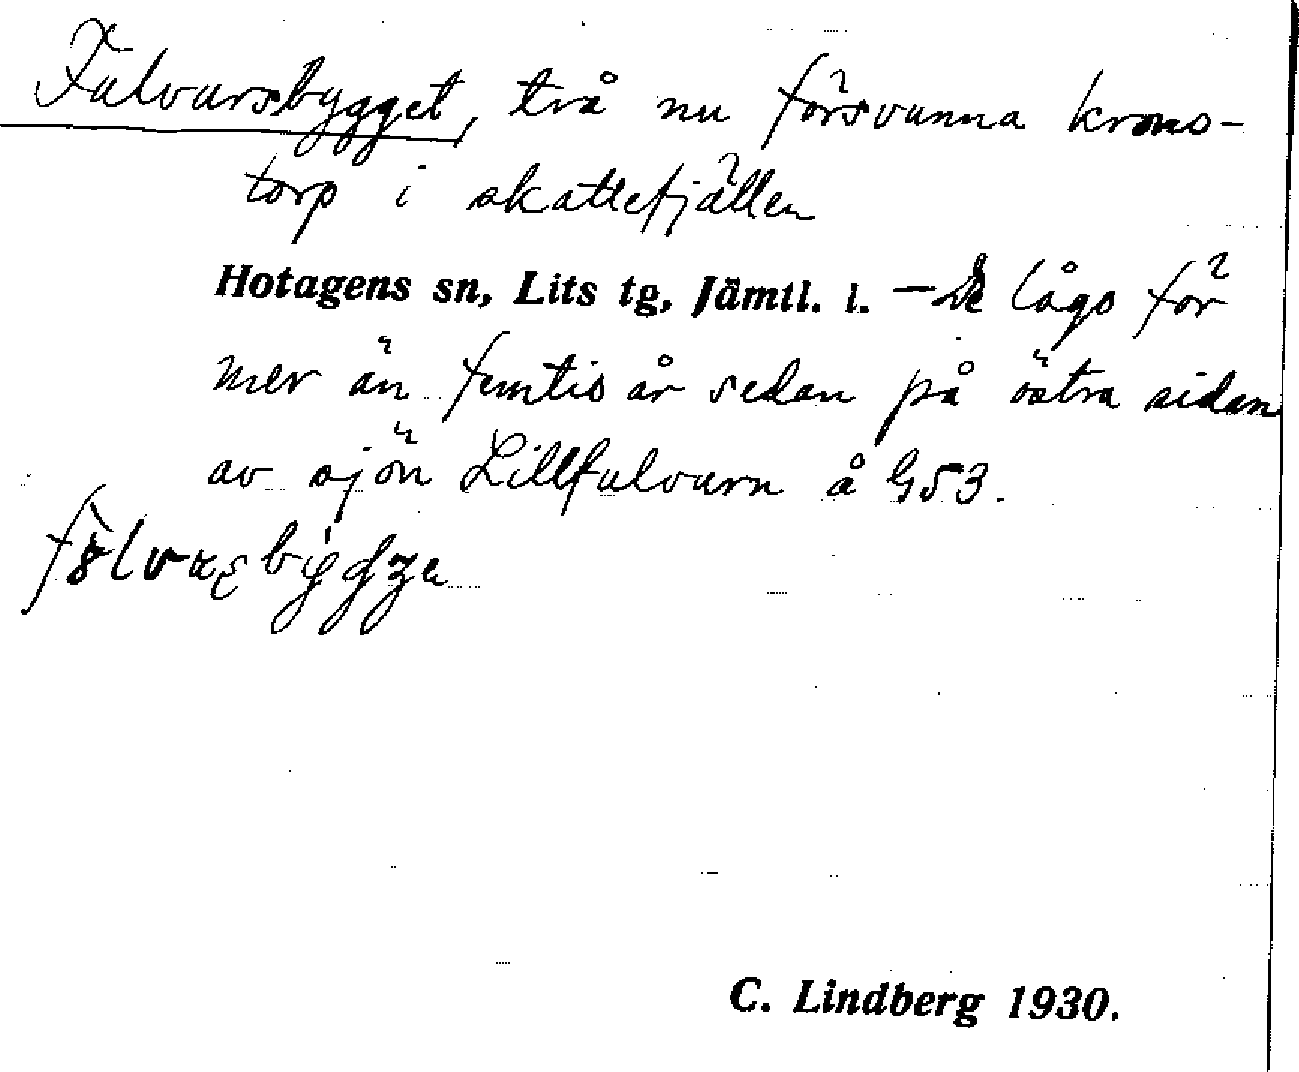 Fulvursbygget, två nu försvunna krono-
torp i skattefjällen
Hotagens sn, Lits tg, Jämtl. l. – De lågo för
mer än femtio år sedan på östra sidan
av sjön Lillfulvurn å G53.